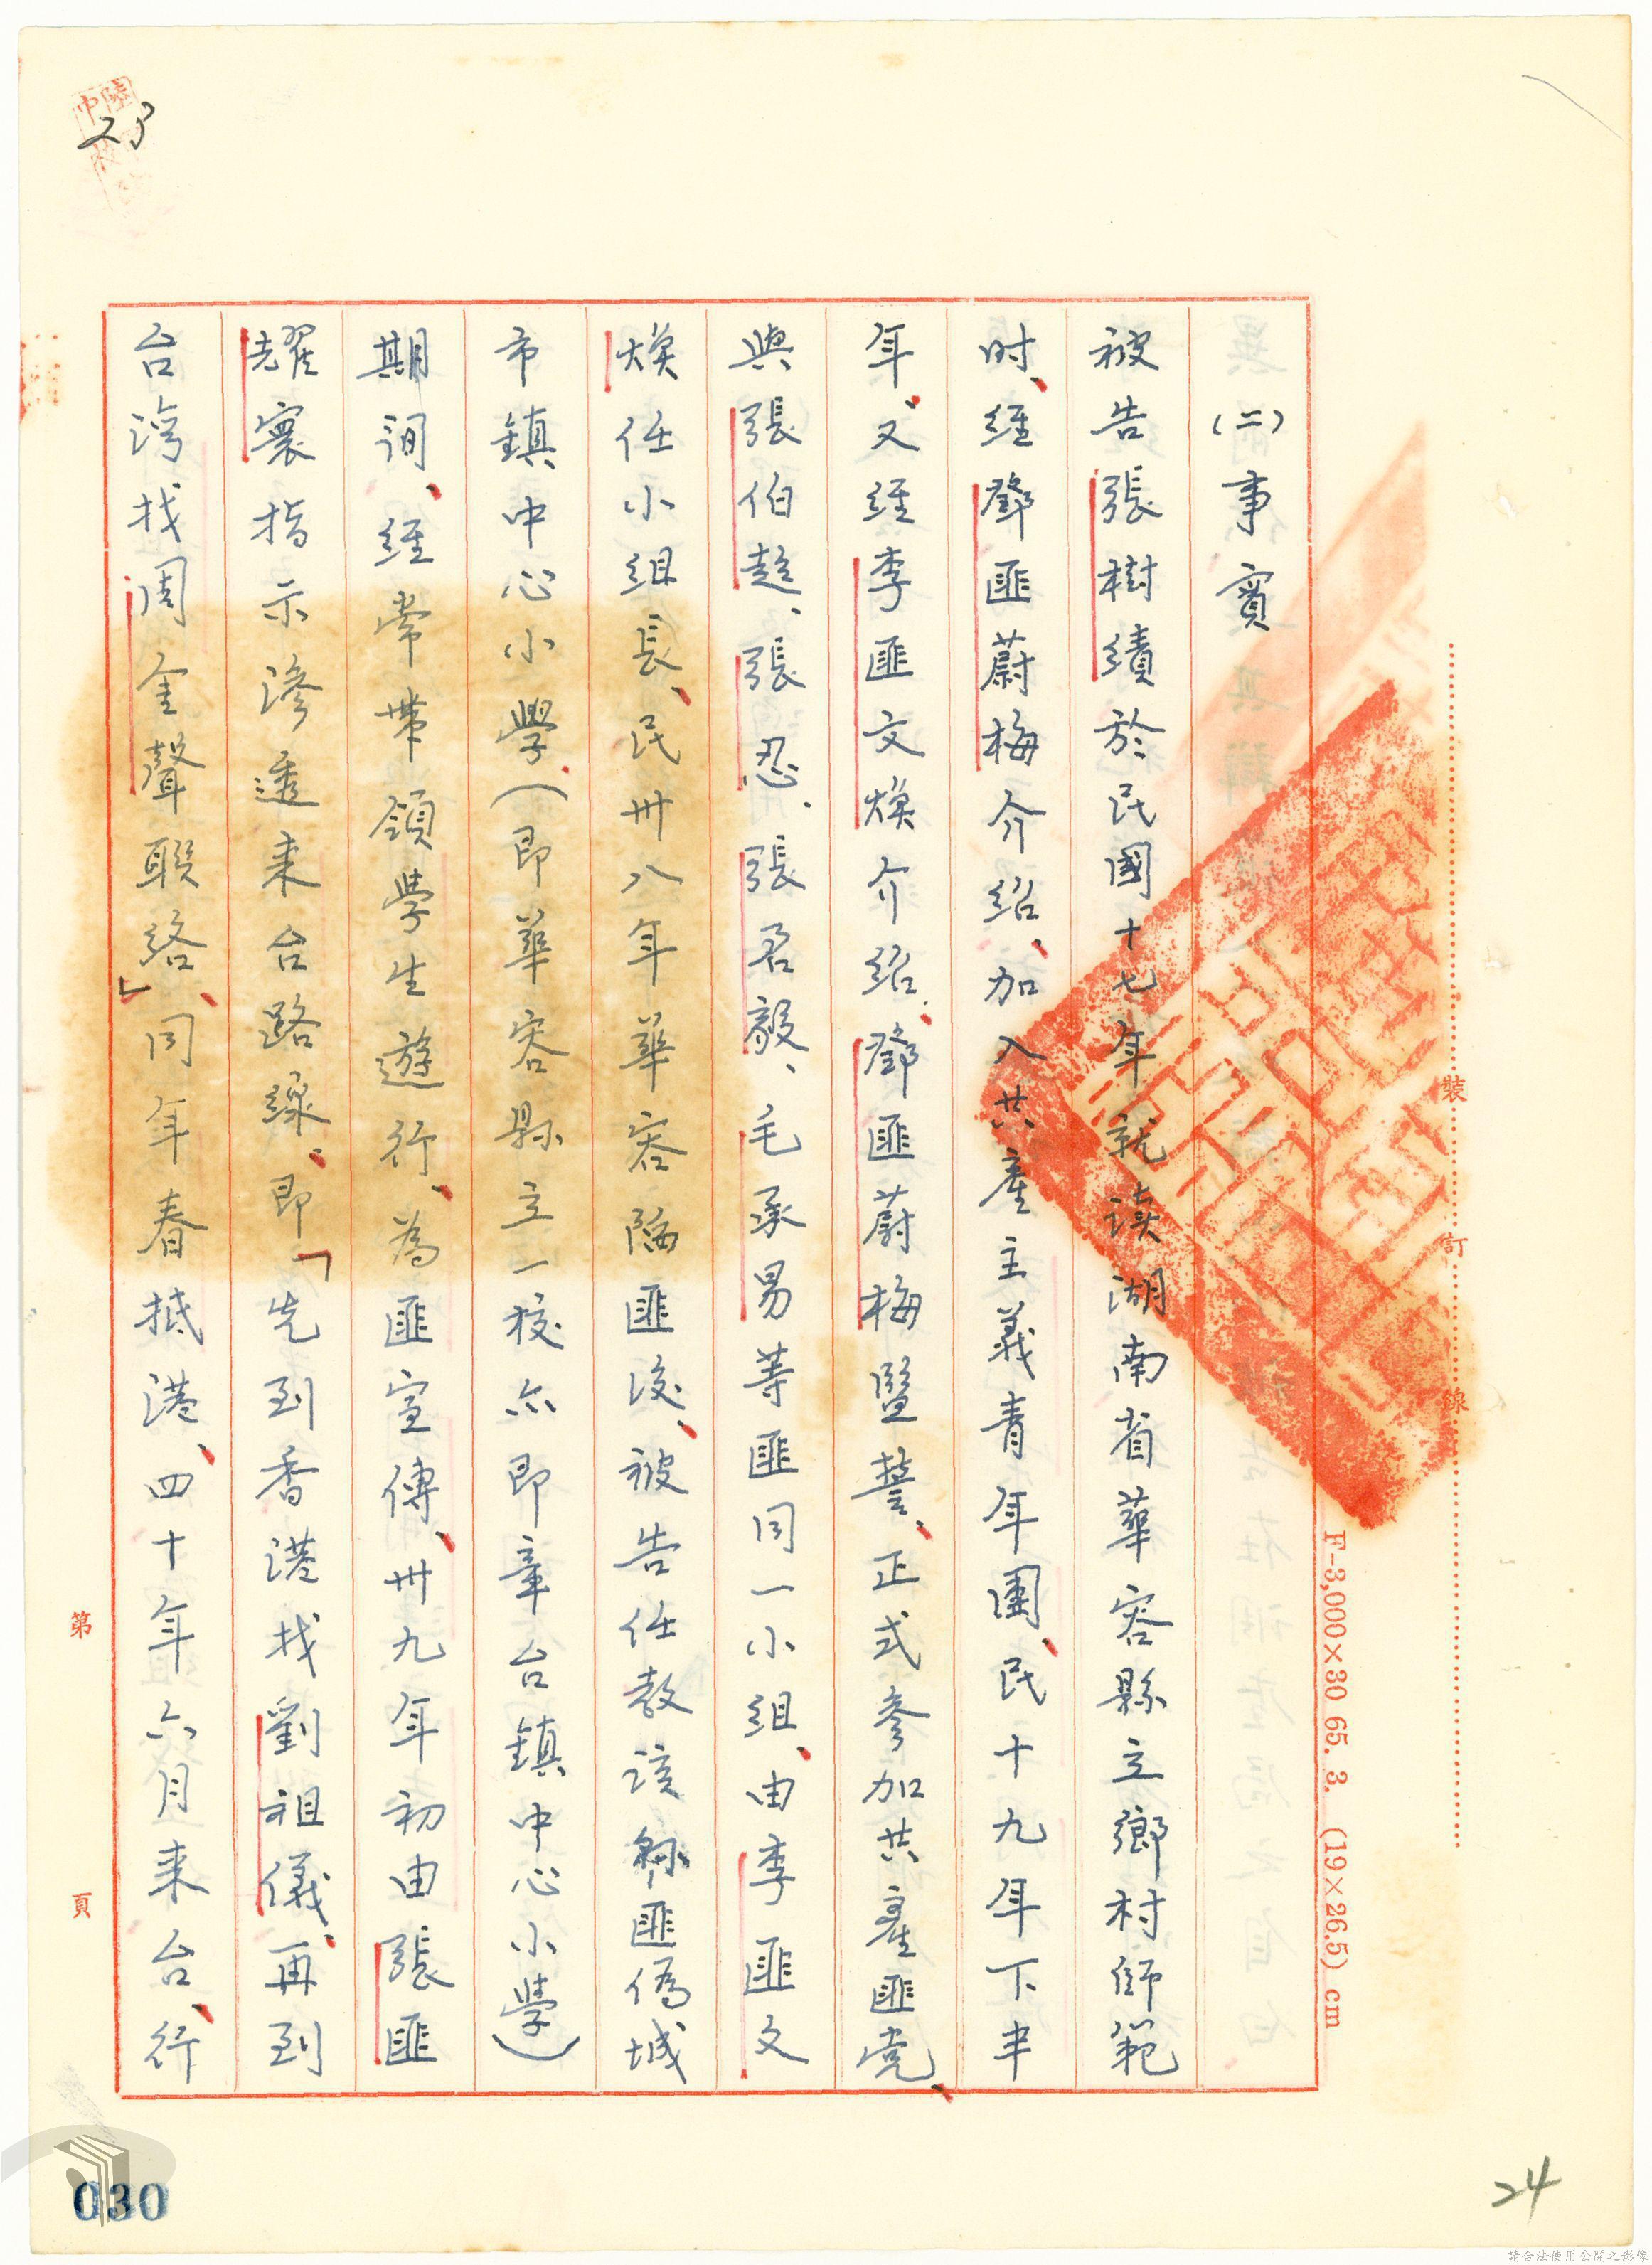 (二)事實
被告張樹績於民國十七年就读湖南省華容縣立鄉村師範
时、經鄧匪蔚梅介绍、加入共產主義青年團、民十九年下半
年、又經李匪文煥介绍、鄧匪蔚梅監誓、正式参加共產匪党、
與張伯超、張忍、張召毅、毛承易等匪同一小组、由李匪文
煥任小组長、民卅八年華容陷匪後、被告任教该縣匪偽城
市鎮中心小學(即華容縣立一校亦即章台鎮中心小學)
期间、經常帶領學生遊行、為匪宣傳、卅九年初由張匪
耀寰指示滲透来台路線、即「先到香港找劉祖儀、再到
台湾找周金聲联络」同年春抵港、四十年六月来台、行
第 頁
裝 訂 線
F-3,000×30 65. 3. (19×26.5) cm
25
24
030
請合法使用公開之影像